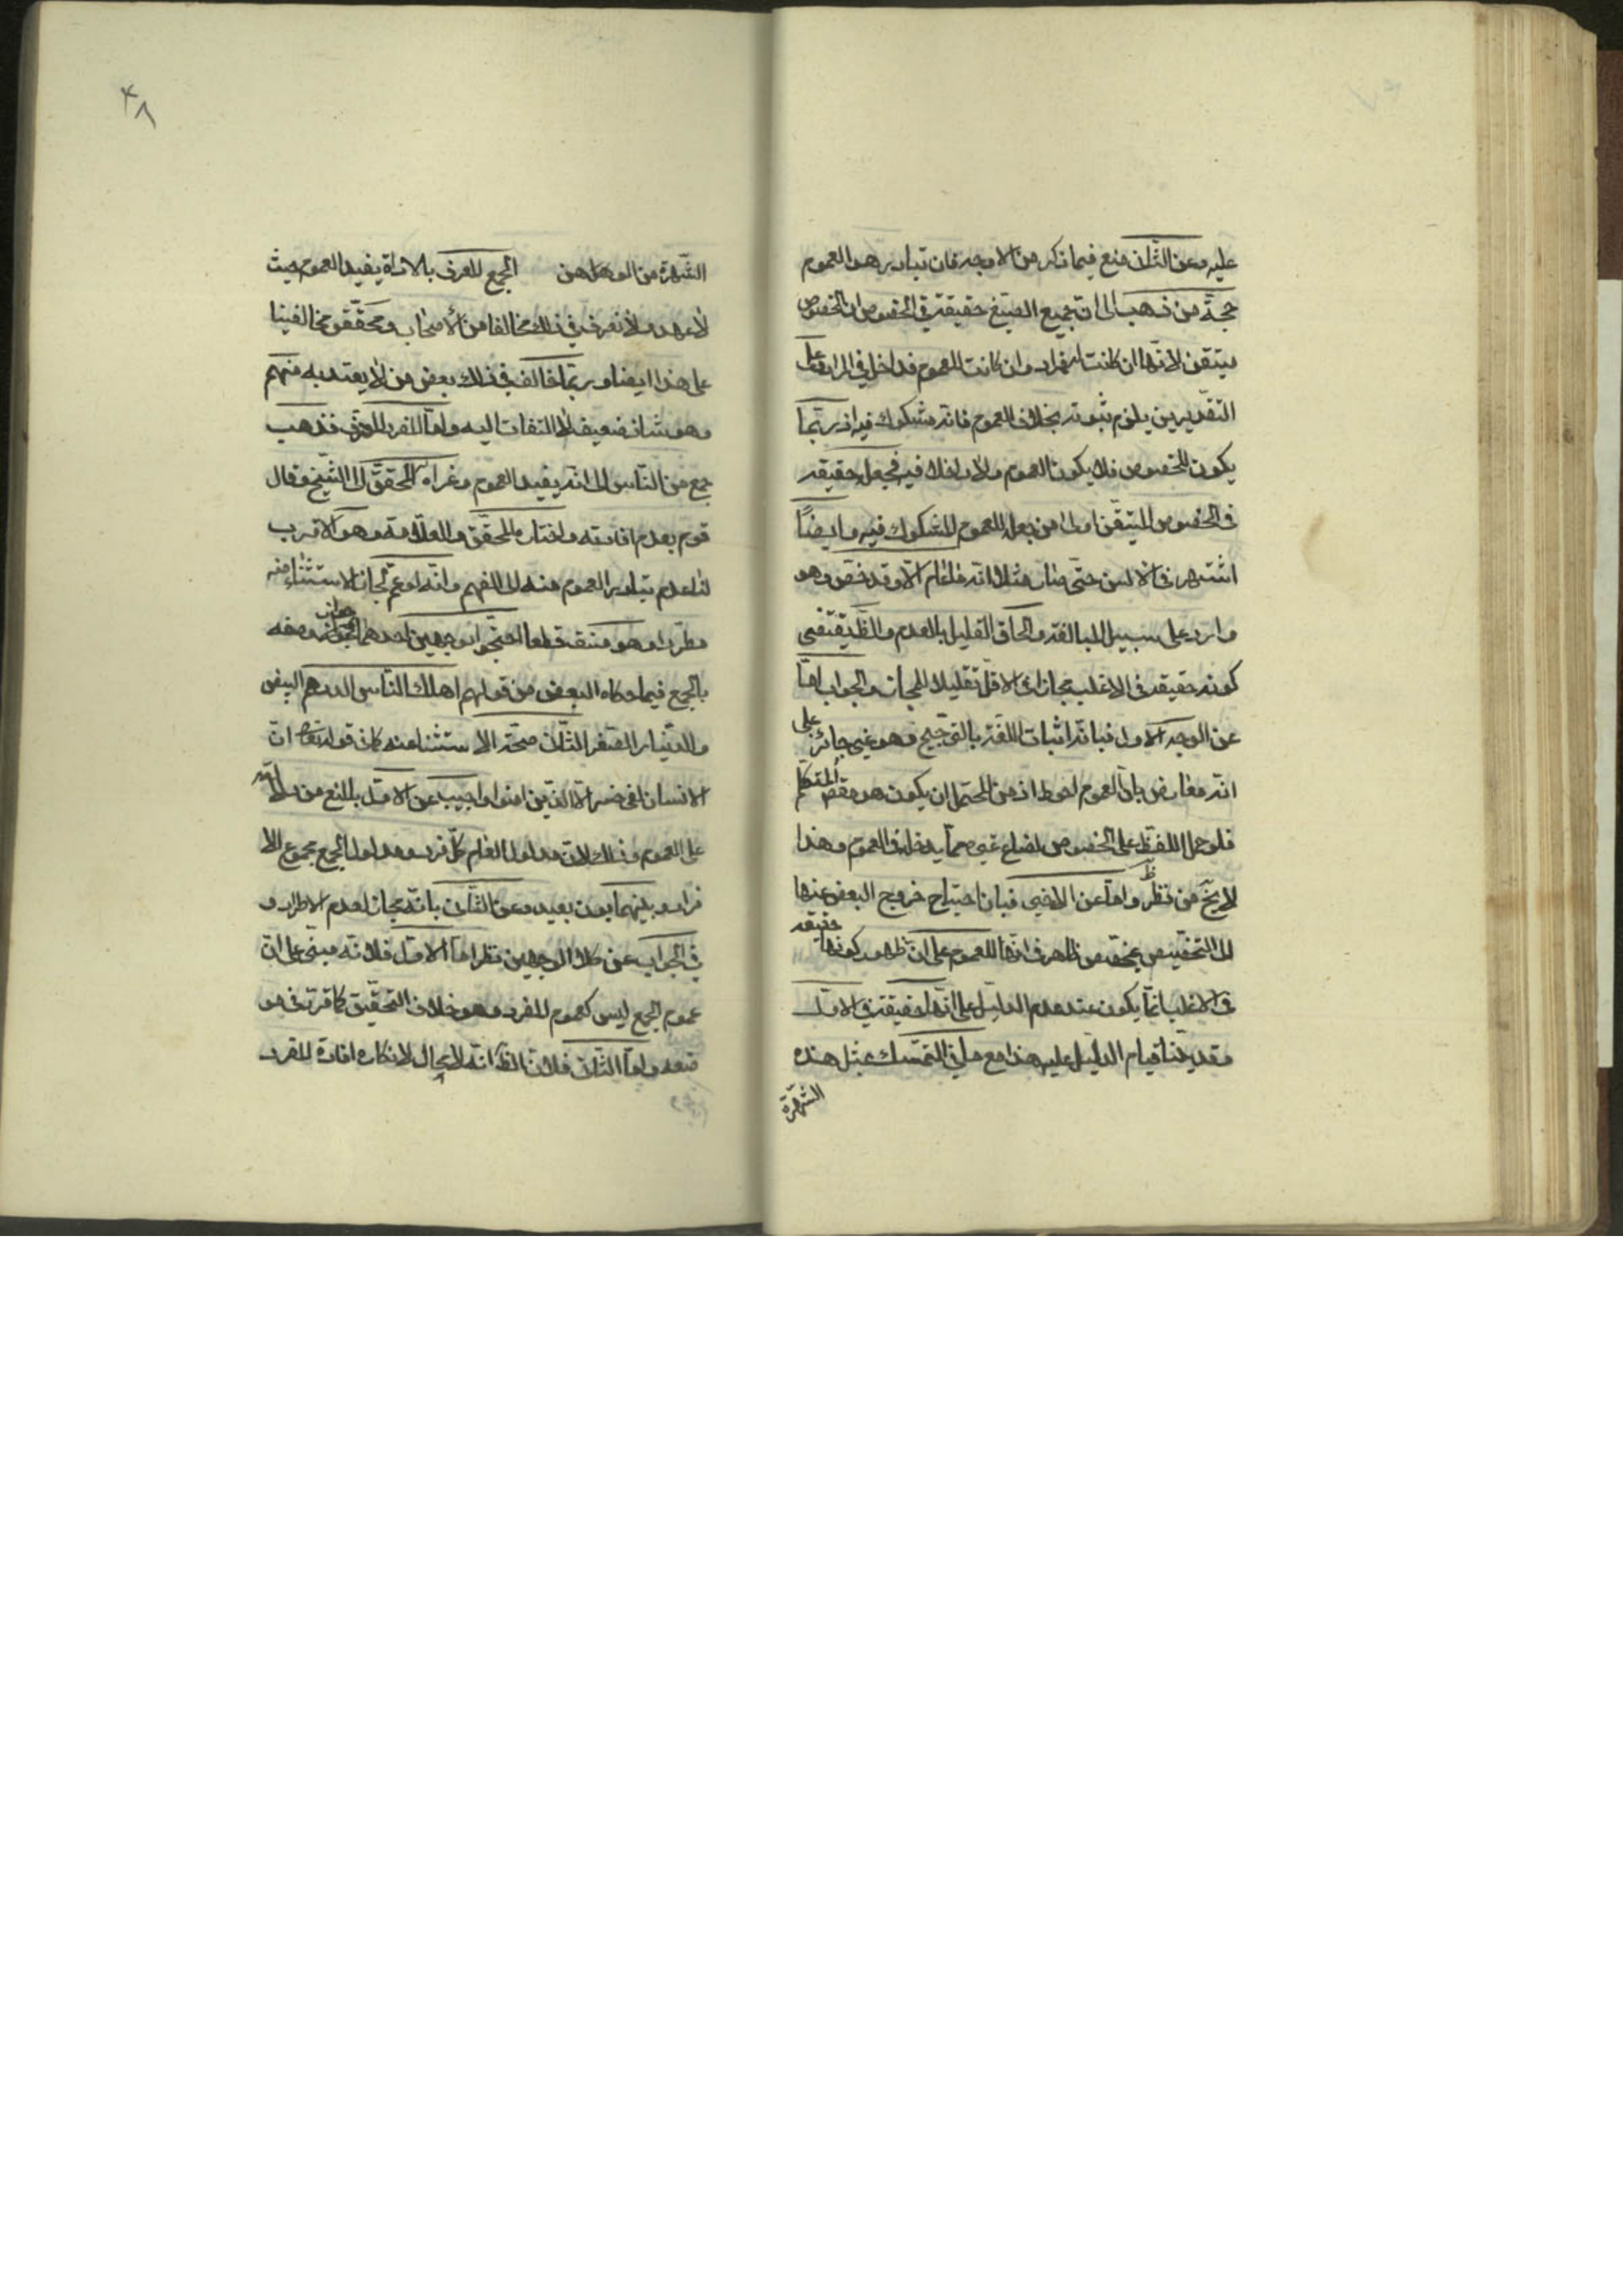 عليه وعن الثانى منع فيما ذكر من الاوجه فان تبادر هو العموم
حجة من ذهب الى ان جميع الصيغ حقيقة في الخصوص ان الخصوص
متيقن لانها ان كانت له فمراد وان كانت للعموم فداخل في المراد وعلى
التقديرين يلزم ثبوته بخلاف العموم فانه مشكوك فيه اذ ربما
يكون للخصوص فلا يكون العموم ولا داخلا فيه فجعله حقيقة
في الخصوص المتيقن اولى من جعله للعموم المشكوك فيه وايضًا
اشتهر في الالسن حتى صار مثلا انه ما من عام الا وقد خص وهو
وارد على سبيل المبالغة والحاق القليل بالعدم والظ يقتضى
كونه حقيقة في الاغلب مجازا في الاقل تقليلا للمجاز والجواب اما
عن الوجه الاول فبانه اثبات اللغة بالترجيح وهو غير جائز على
انه معارض بان العموم احوط اذ من المحتمل ان يكون هو مقصد المتكلم
فلو حمل اللفظ على الخصوص لضاع غيره مما يدخل في العموم وهذا
لا يخ من نظر واما عن الاخير فبان احتياج خروج البعض عنها
الى التخصيص بمخصص ظاهر في انها للعموم على ان ظهور كونها حقيقة
في الاغلب انما يكون عند عدم الدليل على انها حقيقة في الاقل
وقد بينا قيام الدليل عليه هذا مع ما في التمسك بمثل هذه
الشهرة
٤٨
الشهرة من الوهن الجمع المعرف بالاداة يفيد العموم حيث
لا عهد ولا نعرف في ذلك مخالفا من الاصحاب ومحققو مخالفينا
على هذا ايضا وربما خالف في ذلك بعض من لا يعتد به منهم
وهو شاذ ضعيف لا التفات اليه واما المفرد المعرف فذهب
جمع من الناس الى انه يفيد العموم وعزاه المحقق الى الشيخ وقال
قوم بعدم افادته واختاره المحقق والعلامة وهو الاقرب
لنا عدم تبادر العموم منه الى الفهم وانه لو عم لجاز الاستثناء منه
مطردا وهو منتف قطعا احتجوا بوجهين احدهما جواز وصفه
بالجمع فيما حكاه البعض من قولهم اهلك الناس الدرهم البيض
والدينار الصفر الثانى صحة الاستثناء منه كما في قوله تعالى ان
الانسان لفى خسر الا الذين امنوا واجيب عن الاول بالمنع من دلالته
على العموم وذلك لان مدلول العام كل فرد ومدلول الجمع مجموع الا
فراد وبينهما بون بعيد وعن الثانى بانه مجاز لعدم الاطراد و
في الجواب عن كلا الوجهين نظر اما الاول فلانه مبنى على ان
عموم الجمع ليس كعموم المفرد وهو خلاف التحقيق كما قرر في مو
ضعه واما الثانى فلان الظ انه لا مجال لانكار افادة المفرد